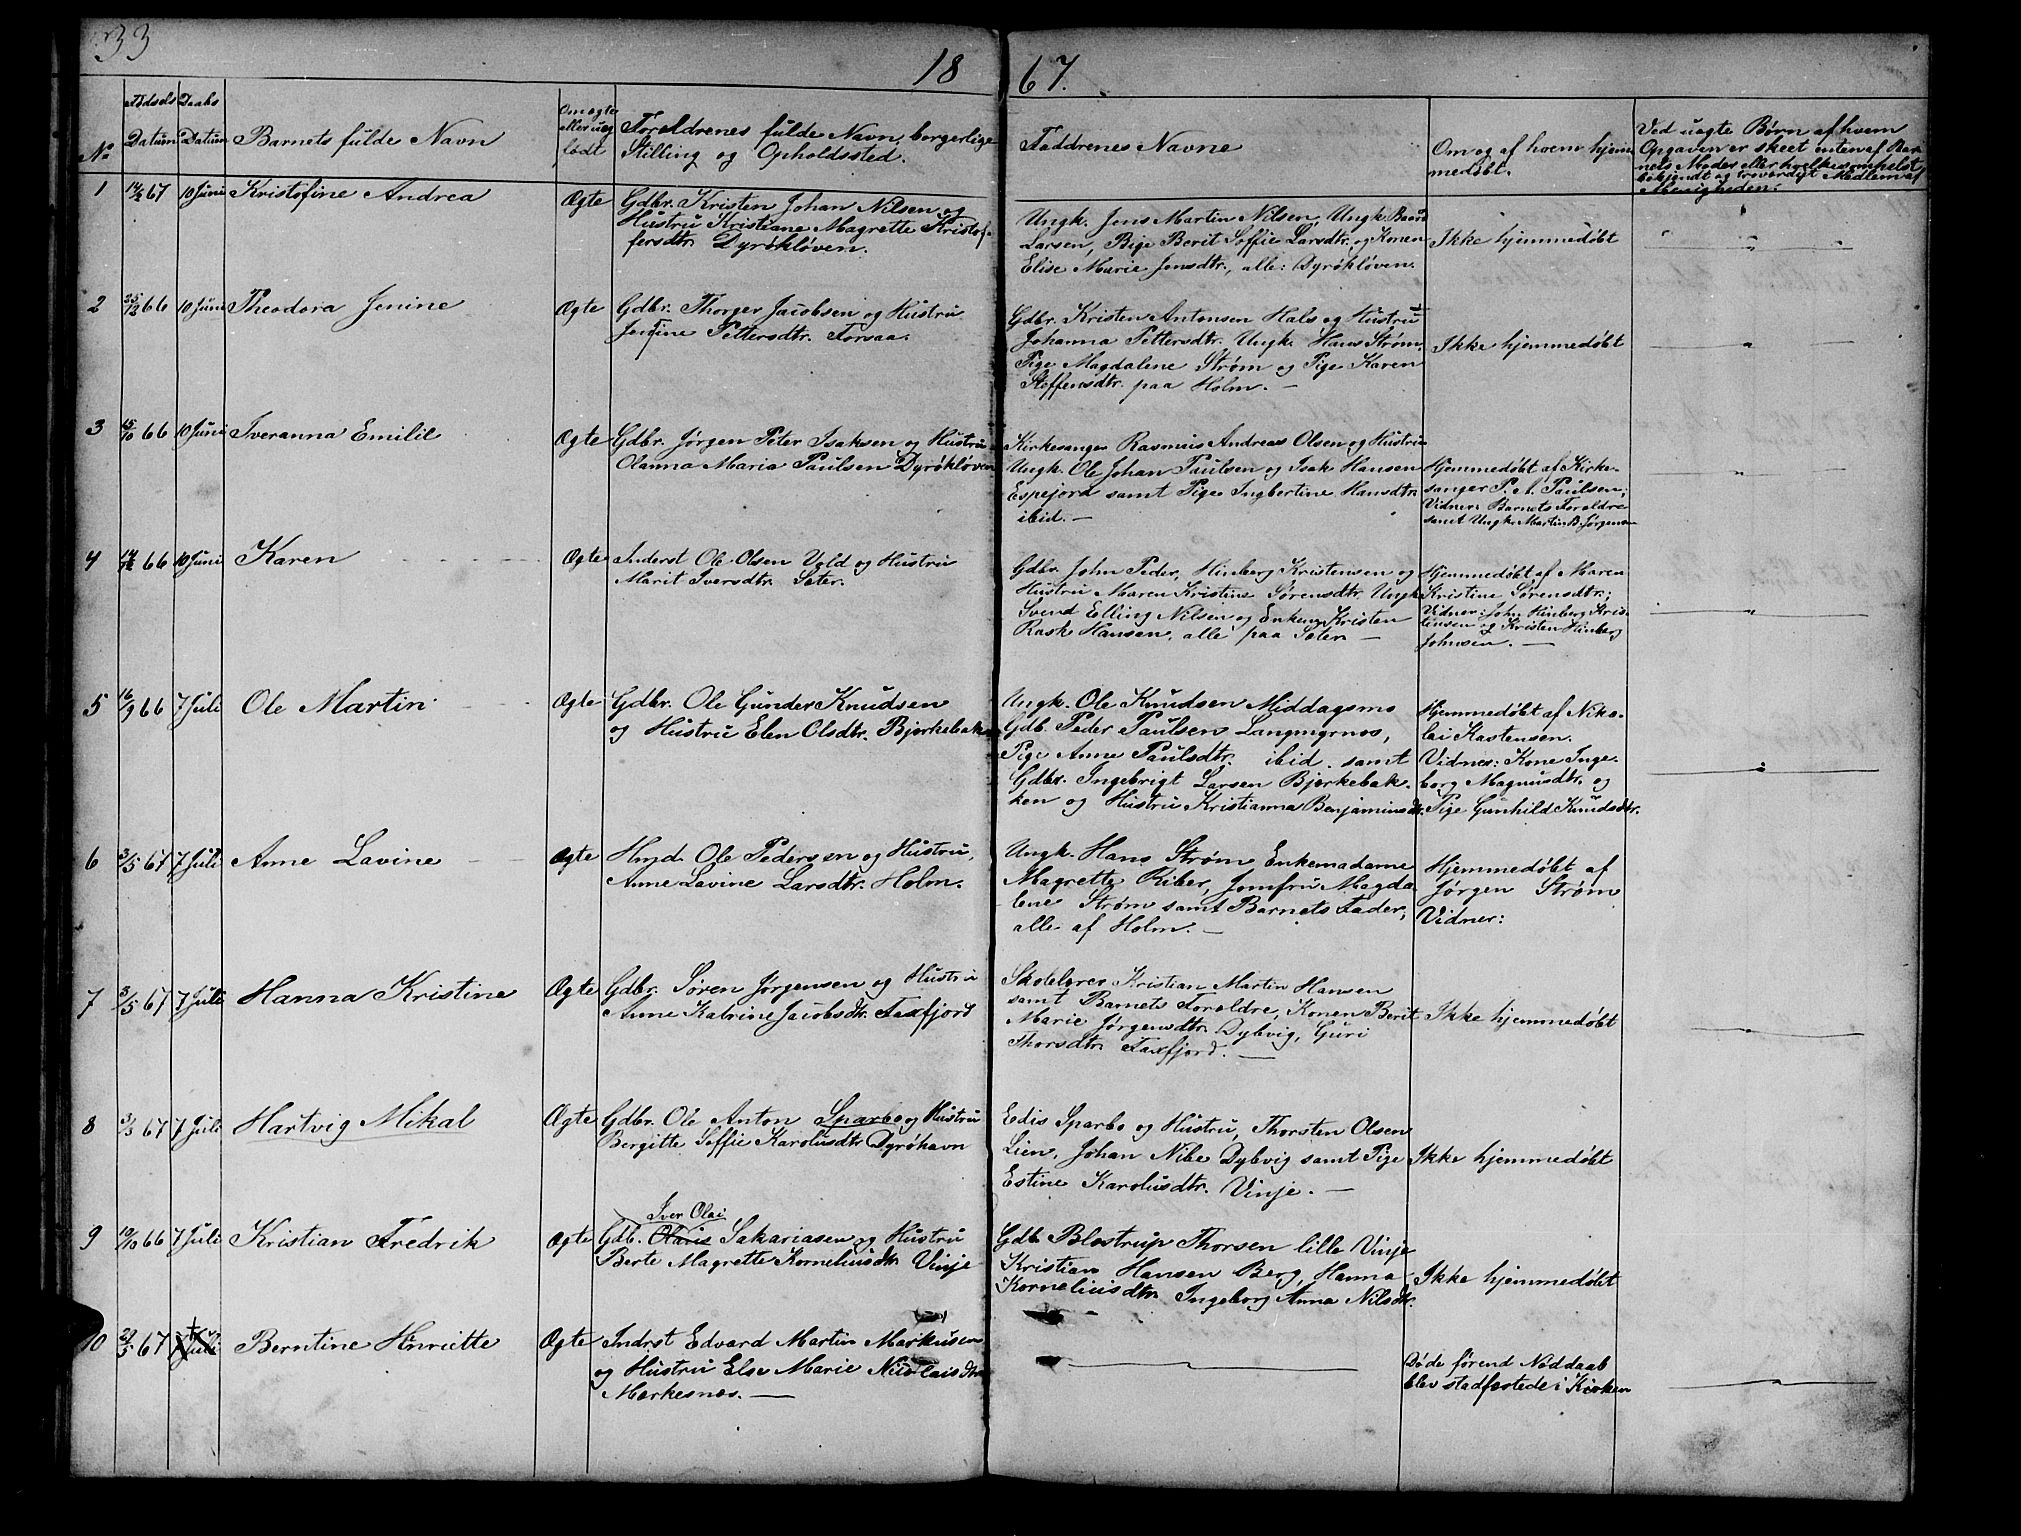 33
18 67.
No
Fødsels Datum
Daabs Datum
Barnets fulde Navn
Om ægte eller uæg født
Forældrenes fulde Navn, borgerlige
Stilling og Opholdssted.
Faddrenes Navne
Om og af hvem hjem
medøbt.
Ved uægte Børn af hvem
Opgaven er skeet enten af Bar
nets Moder eller hvilkesomhelst
bekjendt og troværdigt Medlem af
Menigheden.
1 67 10 Juni Kristofine Andrea Ægte Gdbr. Kristen Johan Nilsen og
Hustru Kristiane Magrette Kristof-
fersdtr. Dyrökløven.
Ungk. Jens Martin Nilsen, Ungk. Baard
Larsen, Pige Berit Soffie Larsdtr. og Konen
Elise Marie Jensdtr., alle: Dyrökløven.
Ikke hjemmedøbt
2 25/12 66 10 Juni Theodora Jenine Ægte Gdbr. Thorger Jacobsen og Hustru
Pettersdtr. Forsaa.
Gdbr. Kristen Antonsen Hals og Hustru
Johanna Pettersdtr. Ungk. Hans Strøm,
Pige Magdalene Strøm og Pige Karen
Steffensdtr. paa Holm. —
Ikke hjemmedøbt
3 15/10 66 10 Juni Iveranna Emilie Ægte Gdbr. Jørgen Peter Isaksen og Hustru
Olanna Maria Paulsen Dyrökløven
Kirkesanger Rasmus Andreas Olsen og Hustru
Ungk. Ole Johan Paulsen og Isak Hansen
Espejord samt Pige Ingbertine Hansdtr.
ibid. —
Hjemmedøbt af Kirke-
sanger P. A. Paulsen;
Vidner: Barnets Forældre
samt Ungk. Martin B. Jørgensen
4 66 10 Juni Karen Ægte Inderst Ole Olsen Vold og Hustru
Marit Iversdtr. Seter.
Gdbr. John Peder Hinberg Kristensen og
Hustru Maren Kristine Sørensdtr. Ungk.
Svend Elling Nilsen og Enkem. Kristen
Rask Hansen, alle paa Seter —
Hjemmedøbt af Maren
Kristine Sørensdtr.;
Vidner: John Hinberg Kris-
tensen og Kristen Hinberg
Johnsen. —
5 16/9 66 7 Juli Ole Martin Ægte Gdbr. Ole Gunder Knudsen
og Hustru Elen Olsdtr. Bjerkebak
Ungk. Ole Knudsen Middagsnes
Gdb. Peder Paulsen Langmyrnes,
Pige Anne Paulsdtr. ibid. samt
Gdbr. Ingebrigt Larsen Bjerkebak-
ken og Hustru Kristianna Benjaminsdtr.
Hjemmedøbt af Niko-
lei Kastensen.
Vidner: Kone Inge-
borg Magnusdtr. og
Pige Gunhild Knudsdtr.
6 3/5 67 7 Juli Anne Lavine Ægte Hmd. Ole Pedersen og Hustru,
Anne Lavine Larsdtr. Holm.
Ungk. Hans Strøm Enkemadame
Magrette Riber, Jomfru Magda-
lene Strøm samt Barnets Fader,
alle af Holm. —
Hjemmedøbt af
Jørgen Strøm
Vidner:
7 3/5 67 7 Juli Hanna Kristine Ægte Gdbr. Søren Jørgensen og Hustru
Anne Katrine Jacobsdtr. Faxfjord
Skolelærer Kristian Martin Hansen
samt Barnets Forældre, Konen Berit
Marie Jørgensdtr. Dybvig, Guri
Thorsdtr. Faxfjord. —
Ikke hjemmedøbt
8 3/3 67 7 Juli Hartvig Mikal Ægte Gdbr. Ole Anton Sparbo og Hustru
Bergitte Soffie Karolusdtr. Dyröhavn
Edis Sparbo og Hustru, Thorsten Olsen
Lien, Johan Nibe Dybvig samt Pige
Estine Karolusdtr. Vinje. —
Ikke hjemmedøbt
Iver Olai
9 19/10 66 7 Juli Kristian Fredrik Ægte Gdb. Olaris Sakariasen og Hustru
Berte Magrette Korneliusdtr. Vinje
Gdb. Blostrup Thorsen lille Vinje
Kristian Hansen Berg, Hanna
Korneliusdtr. Ingeborg Anna Nilsdtr.
Ikke hjemmedøbt
10 67 7 Juli Berntine Henriette Ægte Indrst Edvard Martin Markusen
og Hustru Else Marie Nikolaisdtr.
Merkesnes. —
Døde førend Nøddaab
blev stadfæstede i Kirken